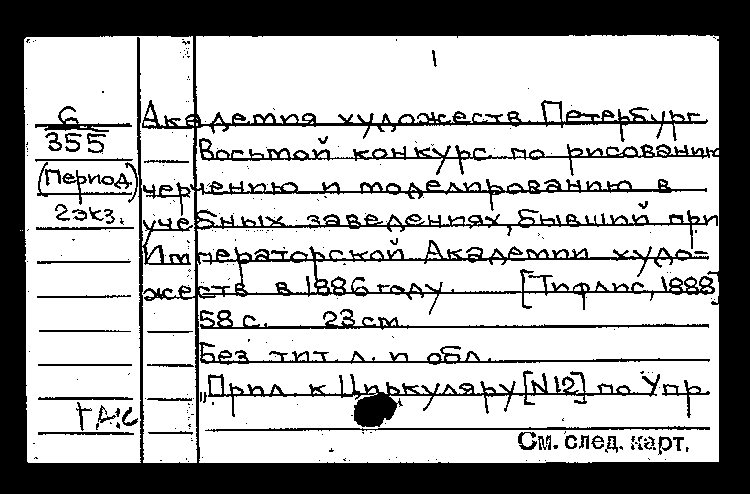 1
6
355
(Период)
2экз.
Академия художеств. Петербург.
Восьмой конкурс по рисованию
черчению и моделированию в
учебных заведениях, бывший при
Императорской Академии худо-
жеств в 1886 году. [Тифлис, 1888]
58 с. 23 cm.
Без тит. л. и обл.
„Прил. к Циркуляру [N12] по Упр.
См. след. карт.